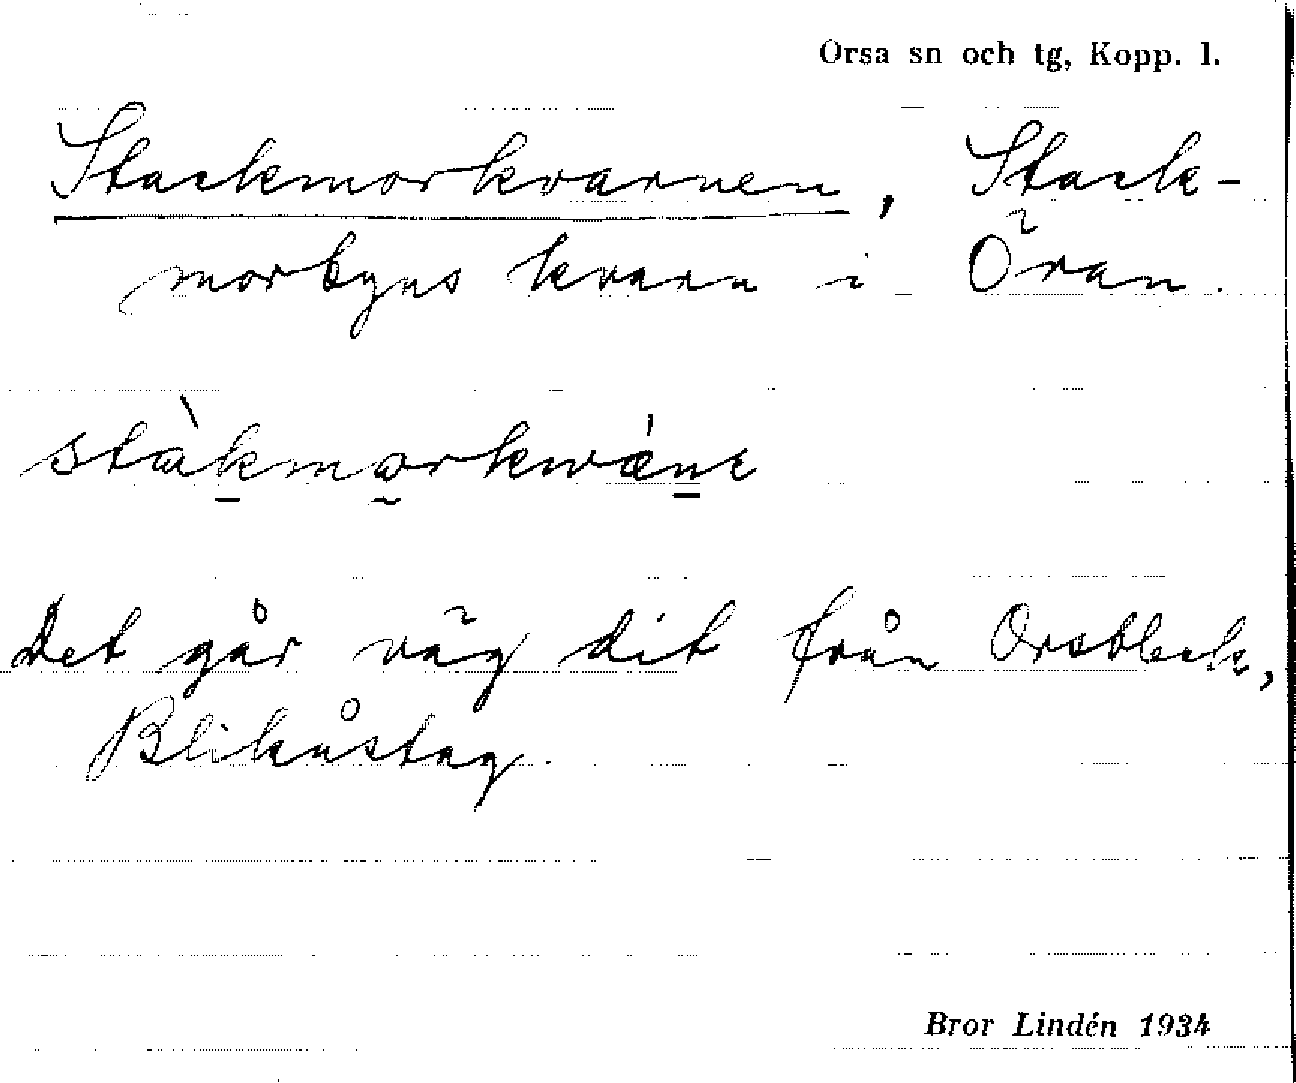 Orsa sn och tg, Kopp. l.
Stackmorkvarnen, Stack-
morbyns kvarn i Öran.
stàkmorkwá̈ne
Det går väg dit från Orstbleck,
Blikåstäg.
Bror Lindén 1934